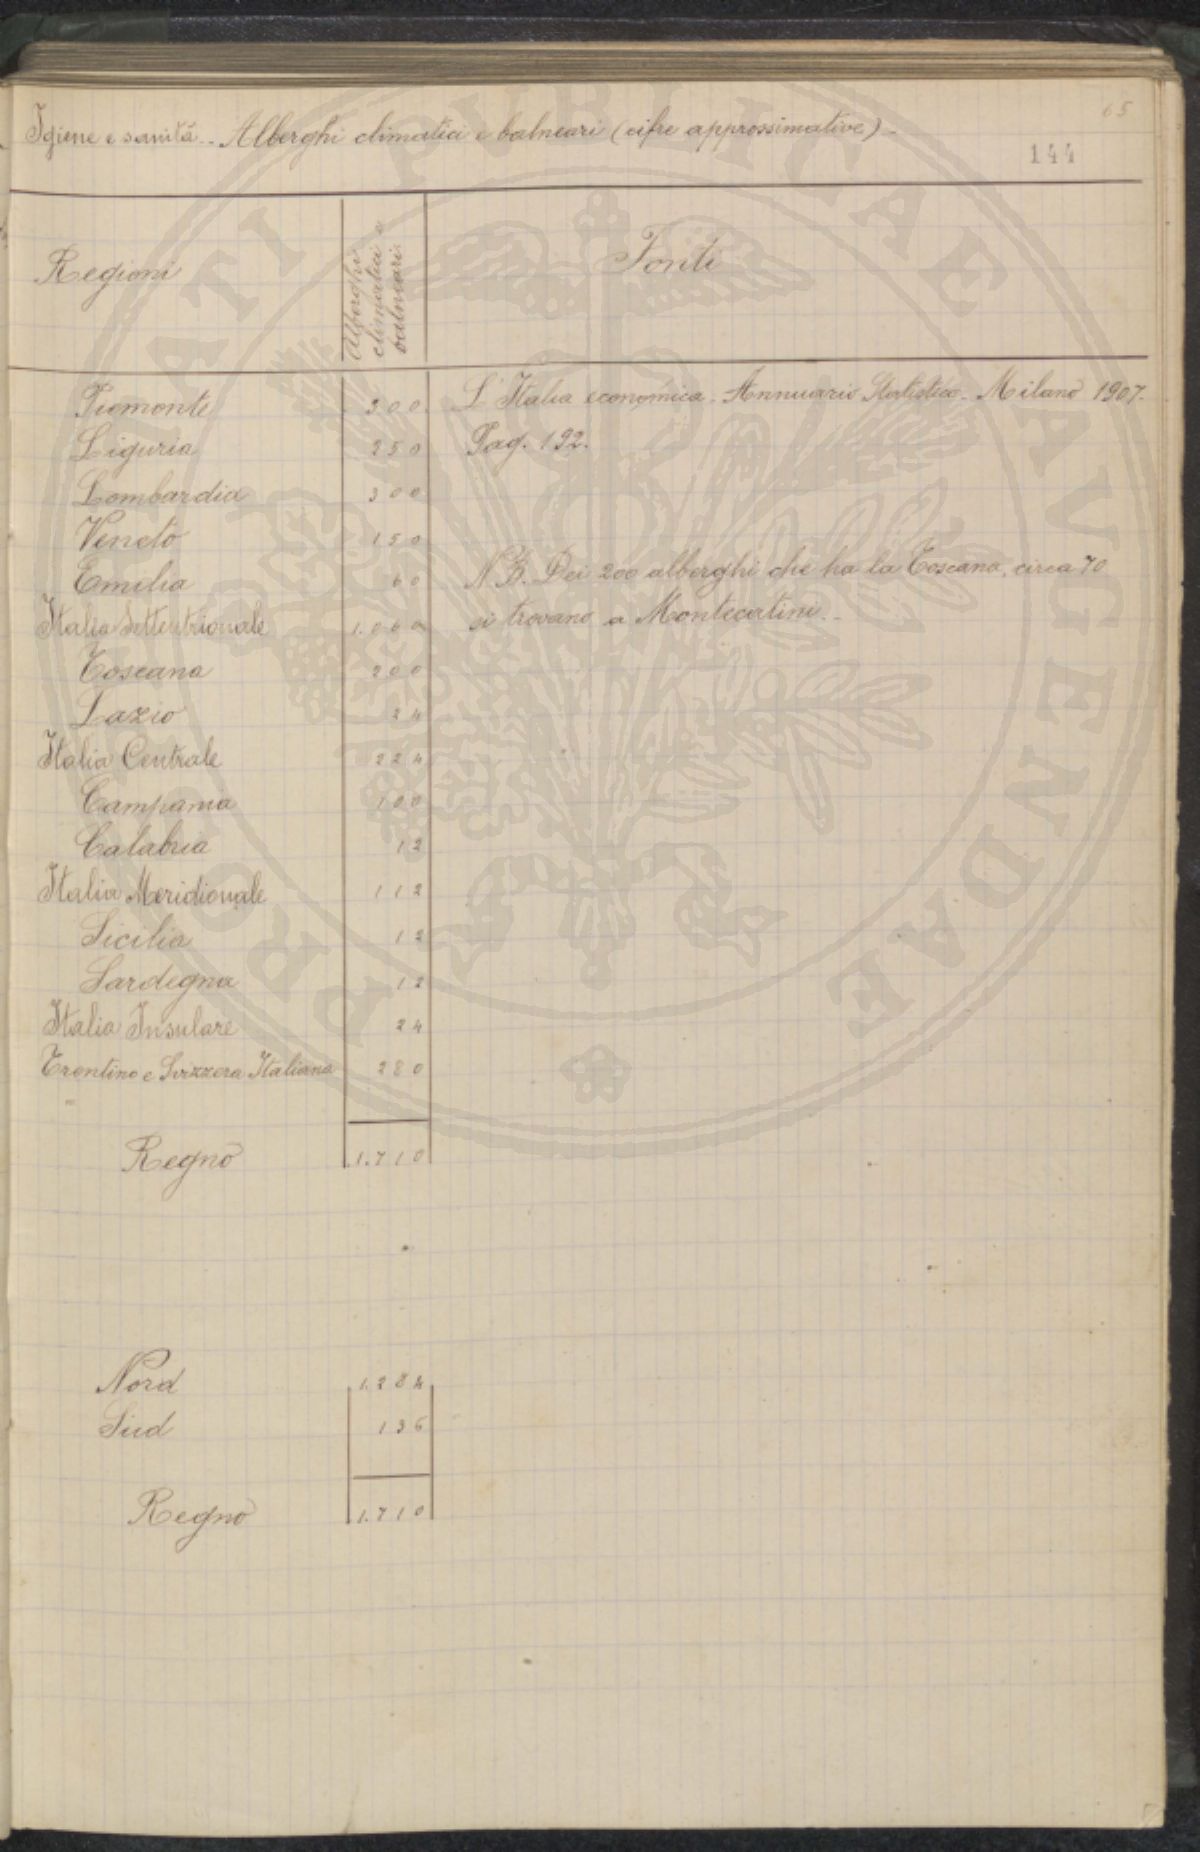 65
Igiene e sanità.. Alberghi climatici e balneari (cifre approssimative)..
144
Regioni
Alberghi climatici e balneari
Fonti
Piemonte 300 L'Italia economica. Annuario Statistico. Milano 1907.
Liguria 250 Pag. 192.
Lombardia 300
Veneto 150
Emilia 60 N.B. Dei 200 alberghi che ha la Toscana, circa 70
Italia Settentrionale 1.060 si trovano a Montecatini..
Toscana 200
Lazio 24
Italia Centrale 224
Campania 100
Calabria 12
Italia Meridionale 112
Sicilia 12
Sardegna 12
Italia Insulare 24
Trentino e Svizzera Italiana 280
Regno 1.710
Nord 1.284
Sud 136
Regno 1.710
PROSPERITATI PUBLICAE AVGENDAE